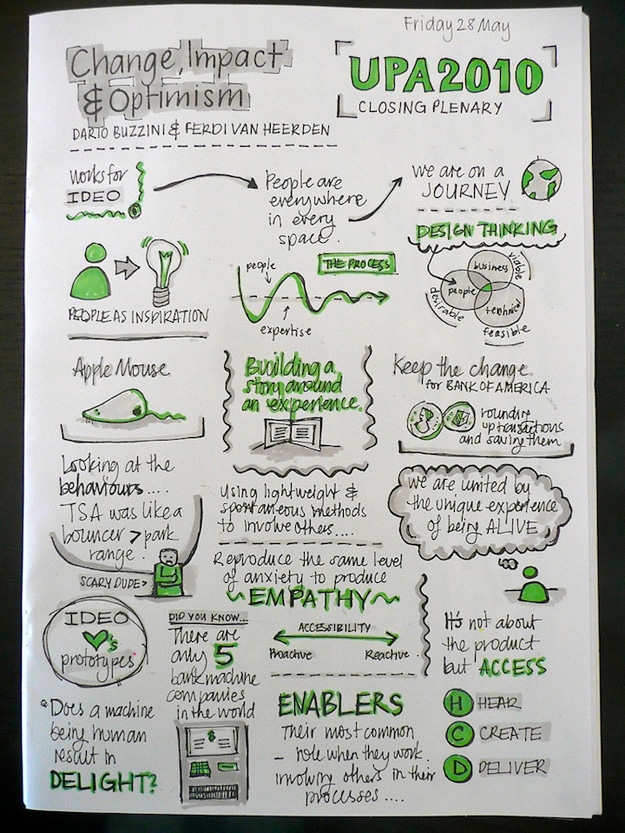 Friday 28 May
Change, Impact
& Optimism
UPA2010
CLOSING PLENARY
DARIO BUZZINI & FERDI VAN HEERDEN
Works for
IDEO
People are
everywhere
in every
space.
We are on a
JOURNEY
PEOPLE AS INSPIRATION
people
THE PROCESS
expertise
DESIGN THINKING
business
viable
people
technical
desirable
feasible
Apple Mouse
Building a
story around
an experience.
Keep the change
for BANK OF AMERICA
$
rounding
up transactions
and saving them
Looking at the
behaviours....
TSA was like a
bouncer > park
range.
SCARY DUDE >
Using lightweight &
spontaneous methods
to involve others....
We are united by
the unique experience
of being ALIVE
Reproduce the same level
of anxiety to produce
EMPATHY
IDEO
's
prototypes
DID YOU KNOW...
There are
only 5
bank machine
companies
in the world
ACCESSIBILITY
Proactive
Reactive
It's not about
the product
but ACCESS
Does a machine
being human
result in
DELIGHT?
$
ENABLERS
Their most common
role when they work
involving others in their
processes....
H HEAR
C CREATE
D DELIVER